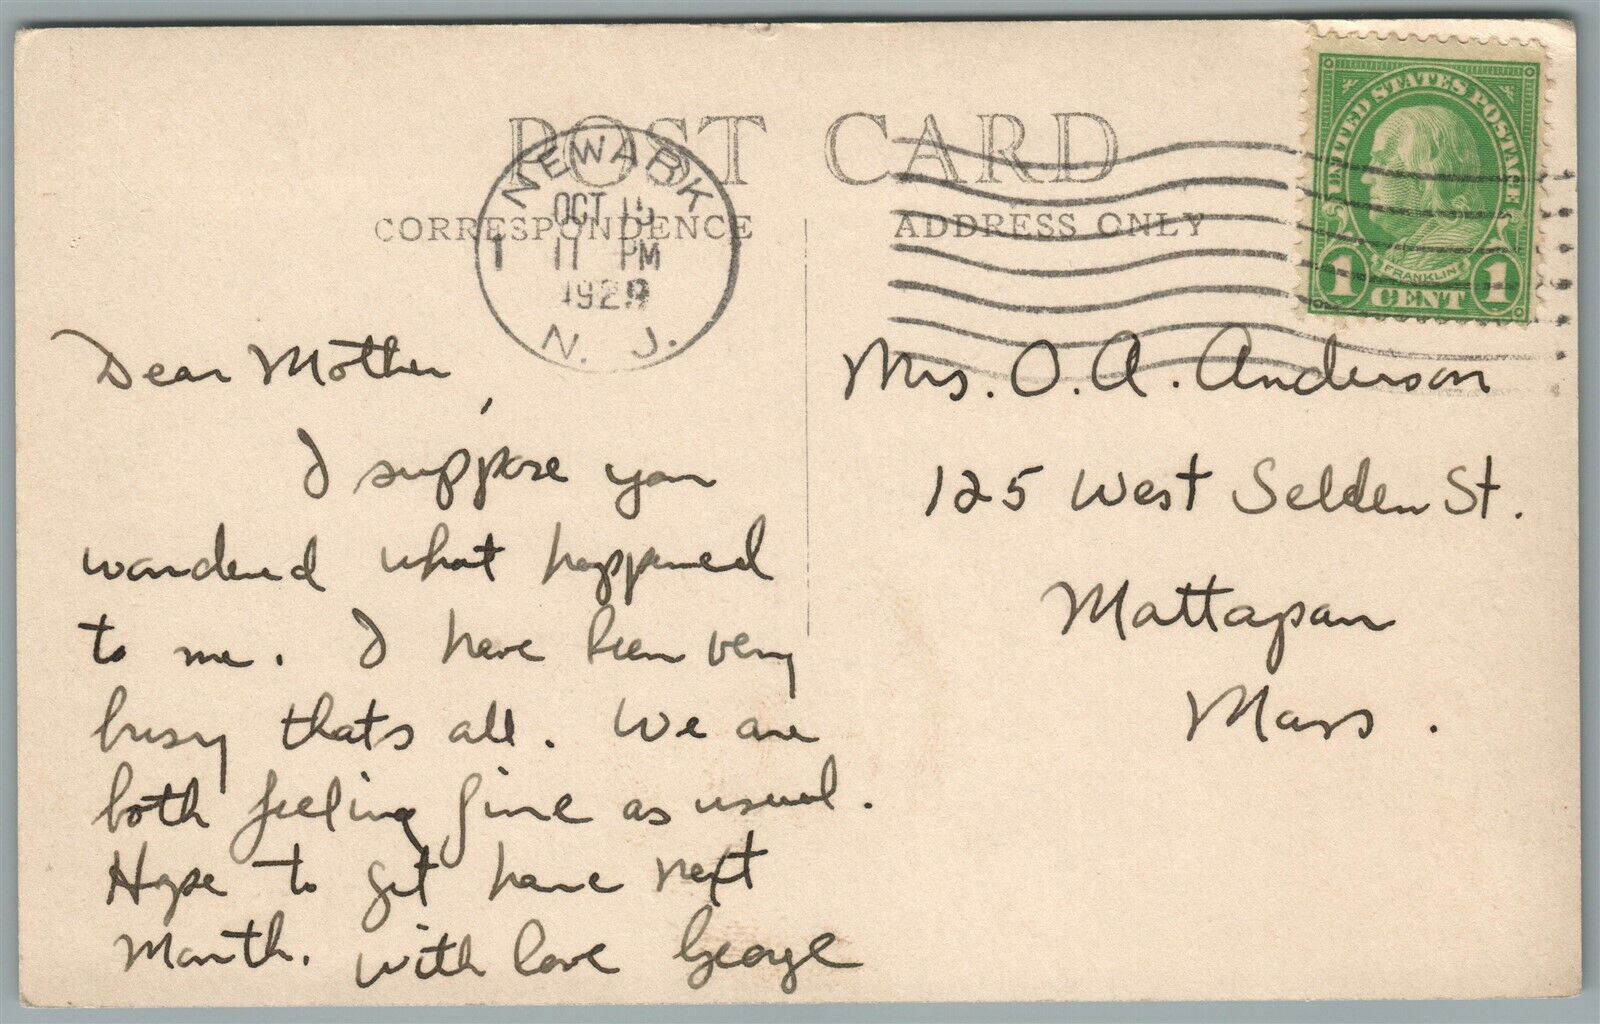 POST CARD
CORRESPONDENCE
ADDRESS ONLY
NEWARK
OCT 15
1 11 PM
1929
N. J.
UNITED STATES POSTAGE
FRANKLIN
1 CENT 1
Dear Mother,
I suppose you
wondered what happened
to me. I have been very
busy thats all. We are
both feeling fine as usual.
Hope to get home next
Month. With love George
Mrs. O. A. Anderson
125 West Selden St.
Mattapan
Mass.